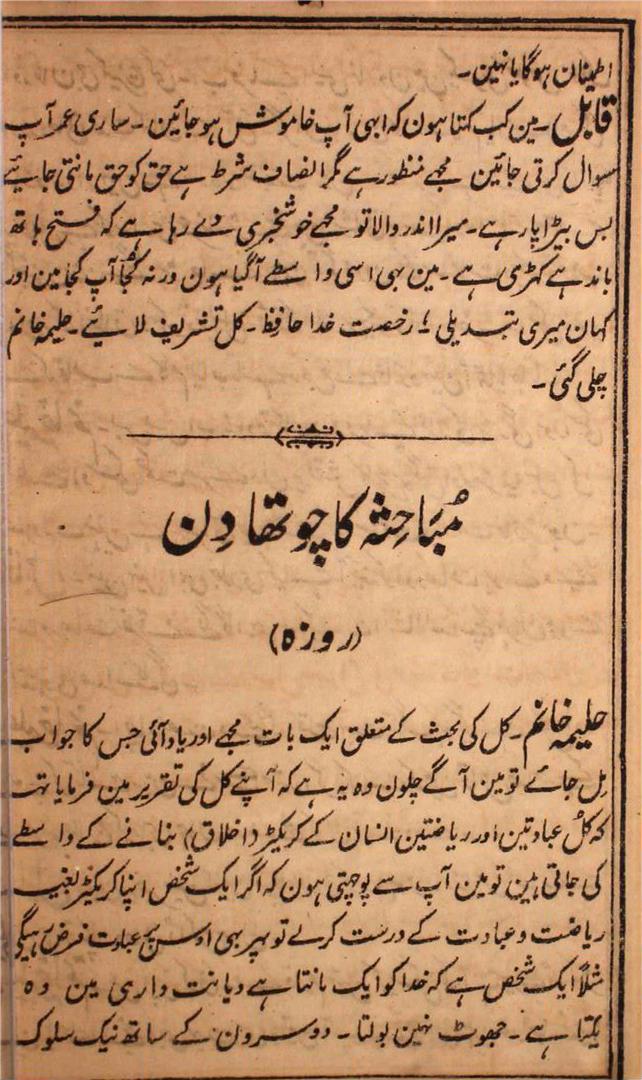 اطینان ہوگایا نہین۔
قابل۔ مین کب کہتا ہون کہ ابہی آپ خاموش ہوجائین۔ ساری عمر آپ
سوال کرتی جائین مجہے منظور ہے مگر انصاف شرط ہے حق کو حق مانتی جایئے
بس بیڑا پار ہے۔ میرا اندر والا تو مجہے خوشخبری دے رہا ہے کہ فستح ہاتھ
باندہے کہڑی ہے۔ مین بہی اسی واسطے آگیا ہون ورنہ کُجا آپ کجا مین اور
کہان میری تبدیلی! رخصت خدا حافِظ۔ کل تشریف لایئے۔ حلیمہ خانم
چلی گئی۔
مُبَاحِثہ کا چوتھا دِن
(روزہ)
حلیمہ خانم۔ کل کی بحث کے متعلق ایک بات مجہے اور یاد آئی جس کا جواب
مِل جائے تو مین آگے چلون وہ یہ ہے کہ آپنے کل کی تقریر مین فرمایا تہا
کہ کل عبادتین اور ریاضتین انسان کے کریکٹر (اخلاق) بنانے کے واسطے
کی جاتی ہین تو مین آپ سے پوچہتی ہون کہ اگر ایک شخص اپنا کریکٹر بغیر
ریاضت و عبادت کے درست کرلے تو پہر بہی اوسپر عبادت فرض رہیگی
مثلاً ایک شخص ہے کہ خدا کو ایک مانتا ہے دیانت داری مین وہ
یکتا ہے۔ جھوٹ نہین بولتا۔ دوسرون کے ساتھ نیک سلوک